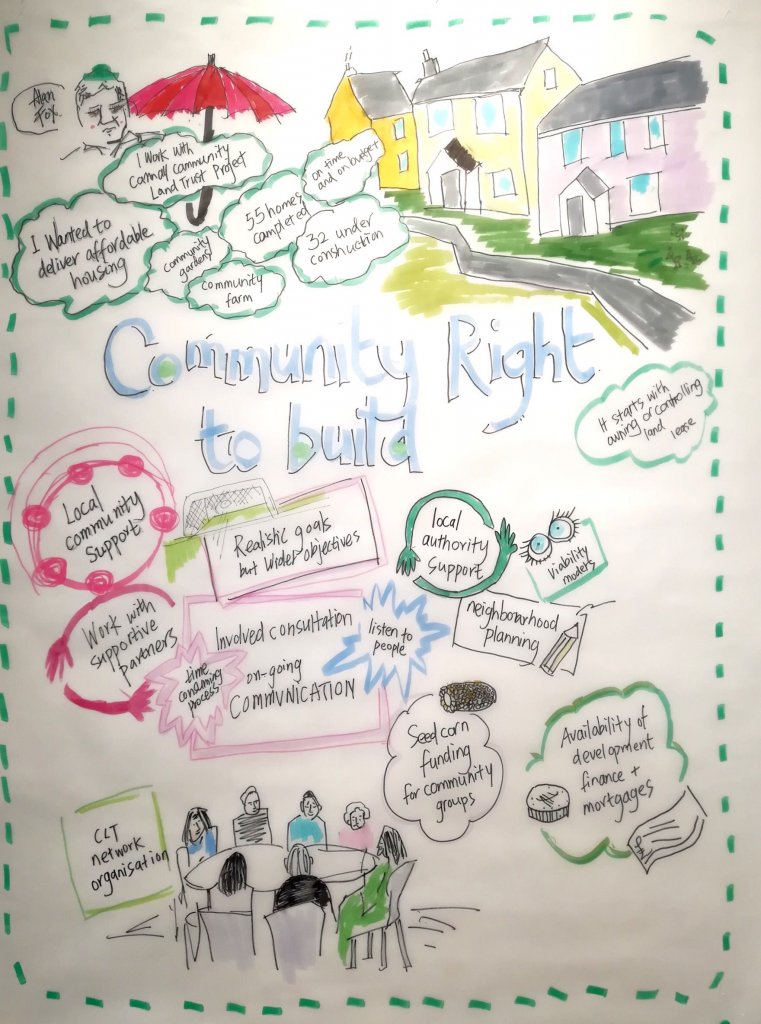 Alan
Fox
I Work with
community
Land Trust Project
on time
and on budget
I Wanted to
deliver affordable
housing
55 homes
completed
32 under
construction
community
gardens
community
farm
Community Right
to build
It starts with
owning or controlling
land lease
Local
community
support
Realistic goals
but wider objectives
local
authority
support
Viability
models
Work with
supportive
partners
Involved consultation
on-going
COMMUNICATION
time
consuming
process
listen to
people
neighbourhood
planning
Seed corn
funding
for community
groups
Availability of
development
finance +
mortgages
CLT
network
organisation